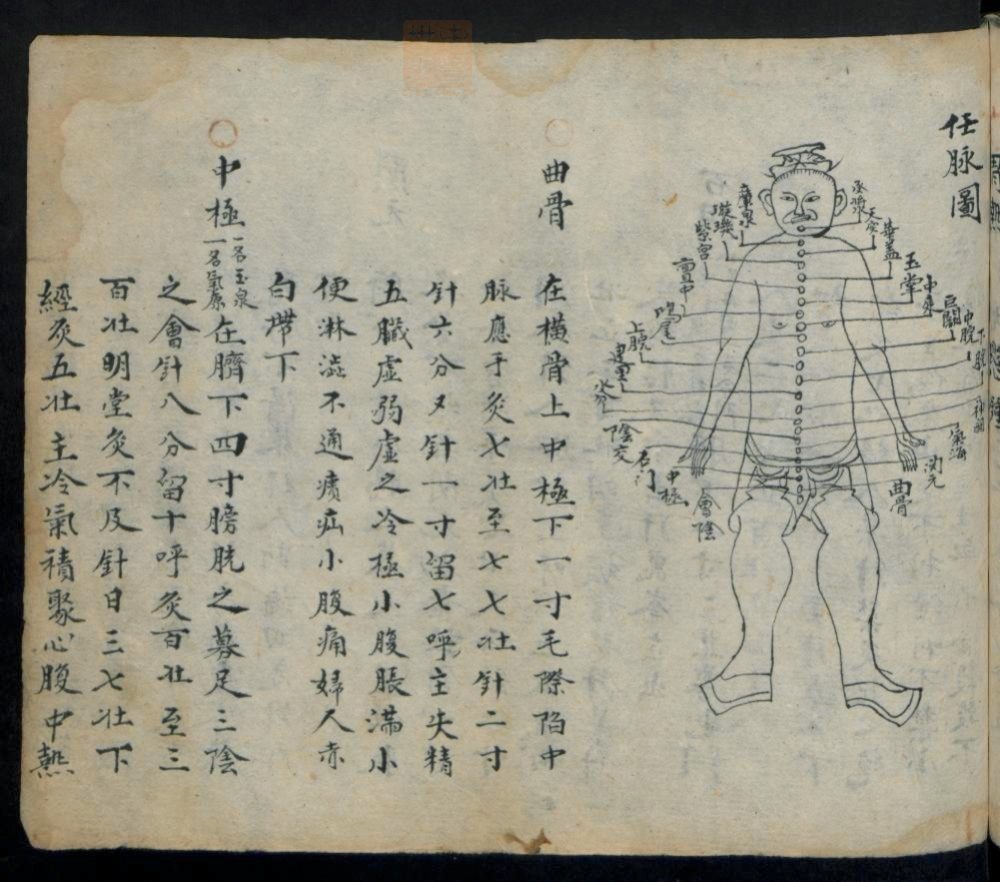 任脉圖
承漿
廉泉
天突
璇璣
華蓋
紫宮
玉堂
亶中
中庭
鳩尾
巨闕
上脘
中脘
建里
下脘
水分
神闕
陰交
氣海
石门
関元
中極
曲骨
會陰
曲骨
在橫骨上中極下一寸毛際陷中
脉應手灸七壮至七七壮針二寸
針六分又針一寸留七呼主失精
五臟虛弱虛之冷極小腹脹滿小
便淋澁不通㿗疝小腹痛婦人赤
白帶下
中極一名玉泉一名氣原在臍下四寸膀胱之募足三陰
之會針八分留十呼灸百壮至三
百壮明堂灸不及針日三七壮下
經灸五壮主冷氣積聚心腹中熱